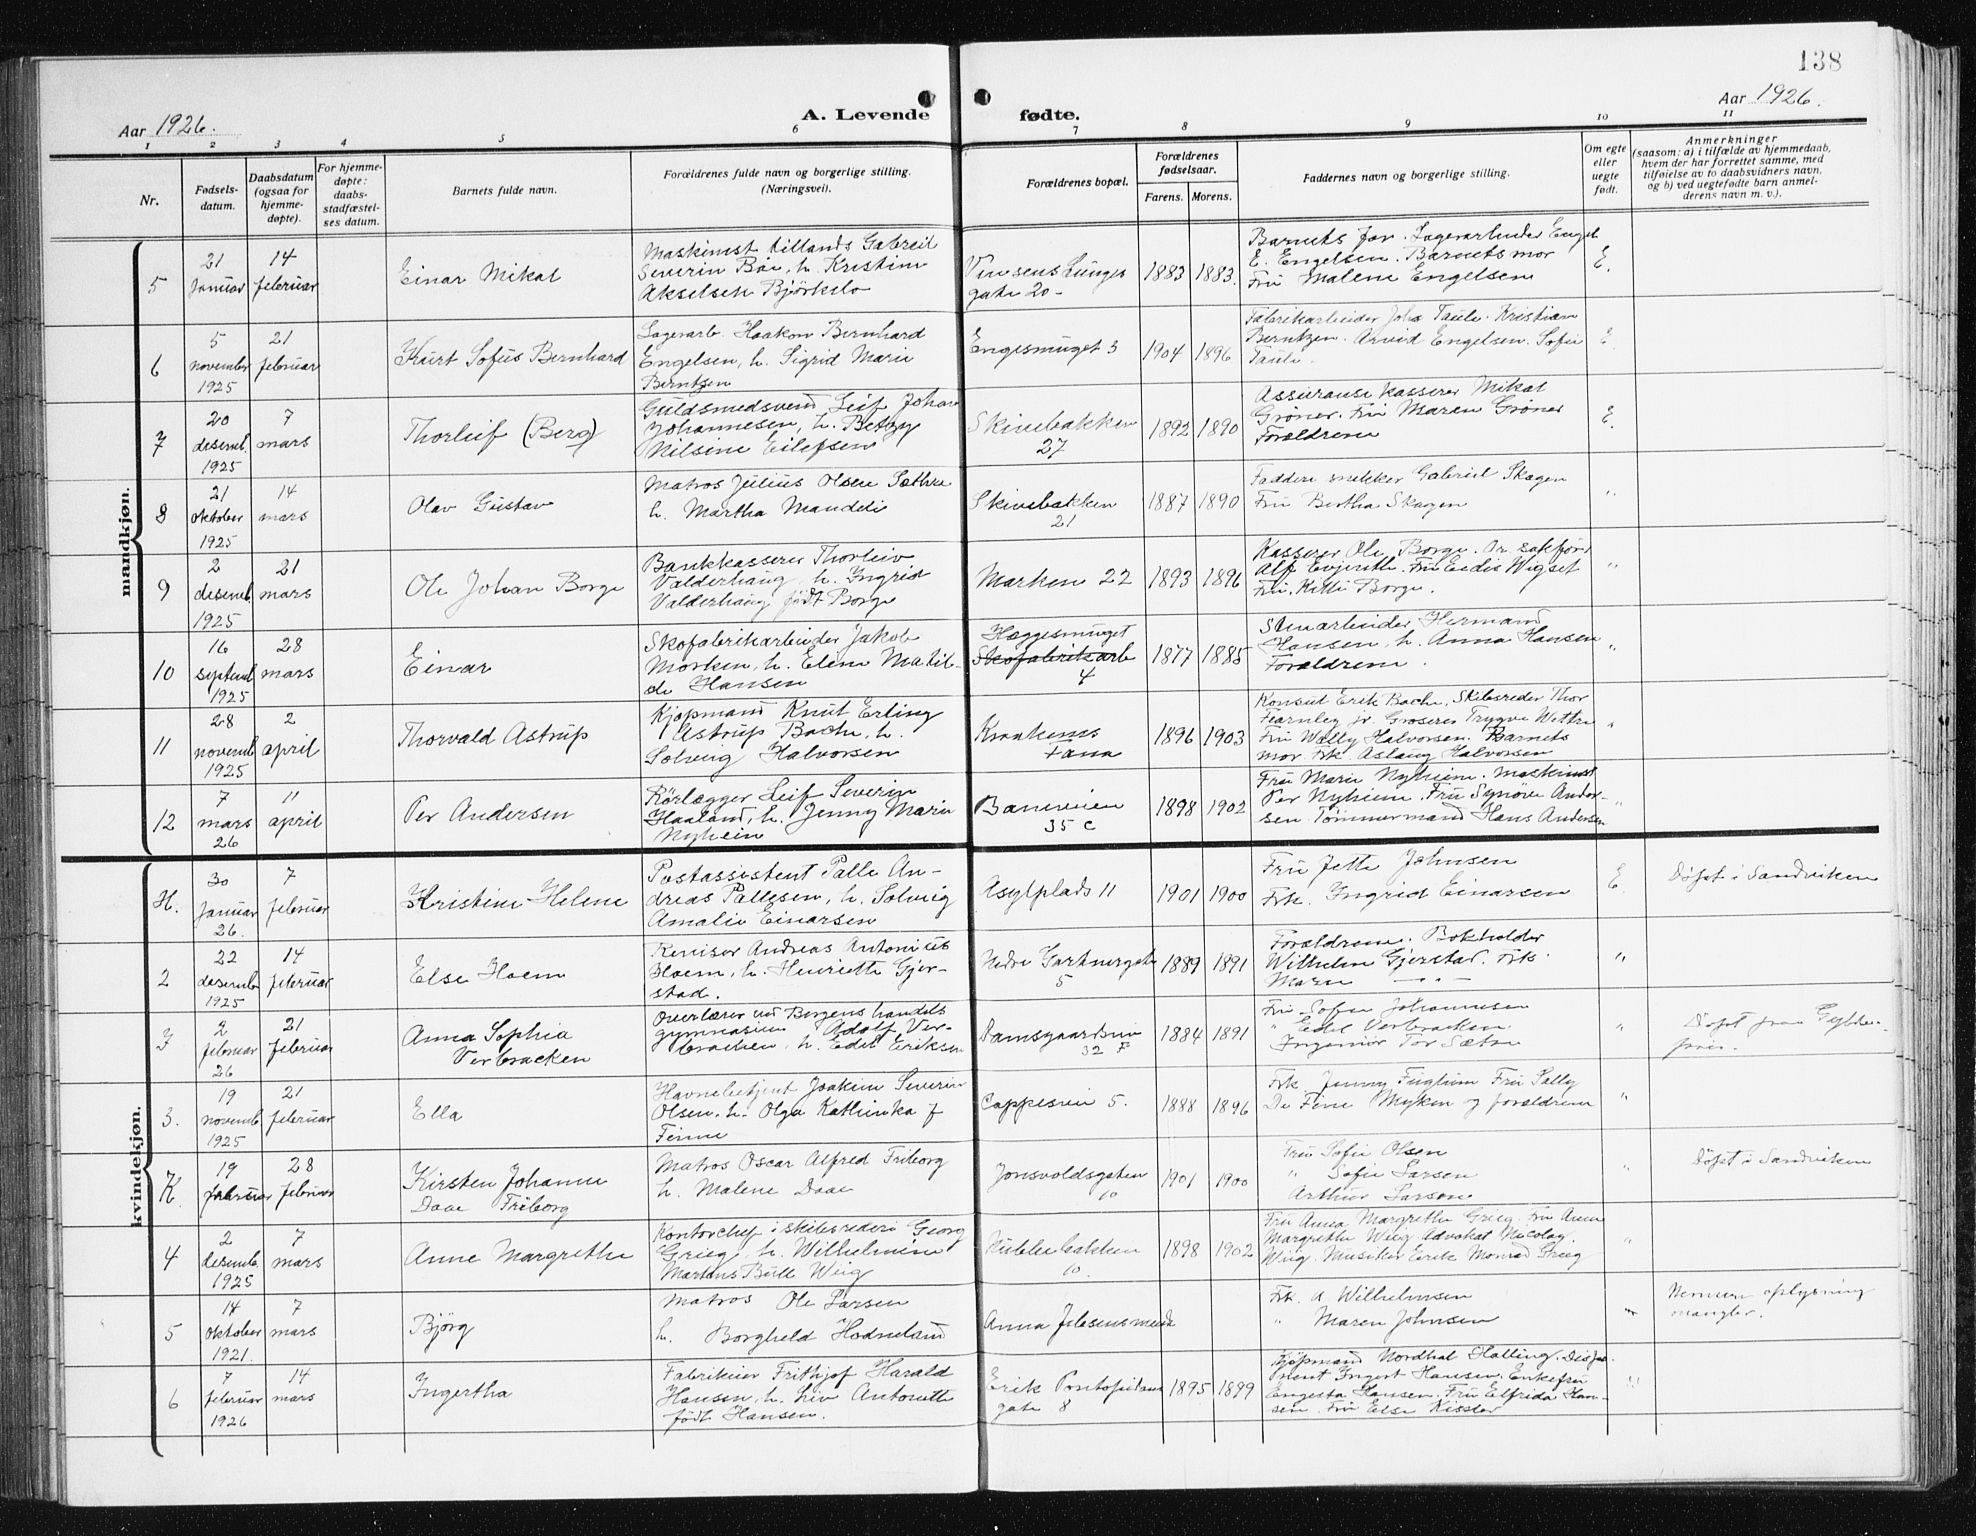 138
Aar 1926.
A. Levende fødte.
Aar 1926.
1 2 3 4 5 6 7 8 9 10 11
Nr.
Fødsels-
datum.
Daabsdatum
(ogsaa for
hjemme-
døpte).
For hjemme-
døpte:
daabs-
stadfæstel-
ses datum.
Barnets fulde navn.
Forældrenes fulde navn og borgerlige stilling.
(Næringsvei).
Forældrenes bopæl.
Forældrenes
fødselsaar.
Farens. Morens.
Faddernes navn og borgerlige stilling.
Om egte
eller
uegte
født.
Anmerkninger
(saasom: a) i tilfælde av hjemmedaab,
hvem der har forrettet samme, med
tilføielse av to daabsvidners navn,
og b) ved uegtefødte barn anmel-
derens navn m. v.).
mandkjøn.
5
21
januar
14
februar
Einar Mikal
Maskinist Gabriel
Severin Bøe, h. Kristine
Akselsen Björkelo
gate 20
1883 1883.
Barnets far. Lagerarbeider Engel
E. Engelsen. Barnets mor
Fru Malene Engelsen
E.
6
5
november
1925
21
februar
Kurt Sofus Bernhard
Lagerarb. Haakon Bernhard
Engelsen, h. Sigrid Marie
Berntzen
Engesmuget 3
1904 1896
Fabrikarbeider Johs Taule. Kristian
Berntzen. Arvid Engelsen. Sofie
Taule.
E.
7
20
desemb.
1925
7
mars
Thorleif (Berg)
Guldsmedsvend Leif Johan
Johannesen, h. Betzy
Nilsine Eilefsen
Skivebakken
27
1892 1890
Assuranse kasserer Mikal
Grøner. Fru Maren Grøner
Forældrene
E.
8
21
oktober
1925
14
mars
Olav Gustav
Matros Julius Olsen Sæthre
h. Martha Mandeli
Skivebakken
21
1887 1890
Faddere snekker Gabriel Skagen
Fru Bertha Skagen
"
9
2
desemb.
1925
21
mars
Ole Johan Borge
Bankkasserer Thorleiv
Valderhaug, h. Ingrid
Valderhaug født Borge
Marken 22
1893 1896
Kasserer Ole Borge. Or. sakfører
Alf Evjenth. Fru Eidis Wigset
Fru. Kitti Borge.
"
10
16
septemb.
1925
28
mars
Einar
Skofabrikarbeider Jakob
Morken, h. Eline Matil-
de Hansen
Heggesmuget
Skofabrikarb
4
1877 1885
Stenarbeider Hermand
Hansen, h. Anna Hansen
Forældrene.
"
11
28
novemb.
1925
2
april
Thorvald Astrup
Kjøpmand Knut Erling
Astrup Bache, h.
Solveig Halvorsen
Kraakenes
Fana
1896 1903
Konsul Erik Bache, Skibsreder Thor
Fearnley jr. Groserer Trygve Wettre
Fru Wally Halvorsen. Barnets
mor. Frk. Aslaug Halvorsen
"
12
7
mars
26
11
april
Per Andersen
Rörlægger Leif Severin
Haaland, h. Jenny Marie
Nyheim
Baneveien
35 c
1898 1902
Fru Marie Nyheim. Maskinist
Per Nyheim. Fru Synøve Ander-
sen. Tømmermand Hans Andersen
"
kvindekjøn.
H.
30
januar
26.
7
februar
Kristine Helene
Postassistent Palle An-
dreas Pallesen, h. Solveig
Amalie Einarsen
Asylplads 11
1901 1900
Fru Jette Johnsen
Frk. Ingrid Einarsen
E.
Døpt i Sandviken
2
22
desemb.
1925
14
februar
Else Hoem
Revisor Andreas Antonius
Hoem, h. Henriette Gjer-
stad.
Nedre Gartnergaten
5
1889 1891
Forældrene. Bokholder
Wilhelm Gjerstad. Frk.
Maren — " —
"
J
2
februar
26
21
februar
Anna Sophia
Verbracken
Overlærer ved Bergens handels
gymnasium, Adolf Ver-
bracken, h. Edel Eriksen
Damsgaardsvei
32 F
1884 1891
Fru Sofie Johannesen
" Edel Verbracken
Ingeniør Tor Sætre
"
Døpt
3.
19
novemb.
1925
21
februar
Ella
Havnebetjent Joakim Severin
Olsen, h. Olga Kathinka f
Fenne
Cappesvei 5.
1888 1896
Frk. Jenny Fuglum Fru Sally
De Fine Myken og forældrene
"
K.
19
februar
28
februar
Kirsten Johanne
Daae Friborg
Matros Oscar Alfred Friborg
h. Malene Daae
Jonsvoldsgaten
10
1901 1900
Fru Sofie Olsen
" Sofie Larsen
Arthur Larsen
"
Døpt i Sandviken
4
2
desemb.
1925
7
mars
Anne Margrethe
Kontorchef i skibsrederi Georg
Grieg, h. Wilhelmine
Martens Bull Wiig
Kubbebakken
10.
1898 1902
Fru Anna Margrethe Grieg. Fru Anne
Margrethe Wiig Advokat Nicolay
Wiig. Musiker Eirik Monrad Grieg
"
5
14
oktober
1921.
7
mars
Bjørg
Matros Ole Larsen
h. Borghild Hodneland
Anna Jebsensminde
Frk. A Wilhelmsen
" Maren Johnsen
"
Nærmere oplysning
mangler.
6
7
februar
1926
14
mars
Ingertha
Fabrikeier Frithjof Harald
Hansen, h. Liv Antonette
født Hansen.
Erik Pontopidans
gate 8
1895 1899
Kjøpmand Nordhal Halling. Dispo-
nent Ingert Hansen. Enkefru
Engesta Hansen. Fru Elfrida Han-
sen. Fru Else Kissler
"